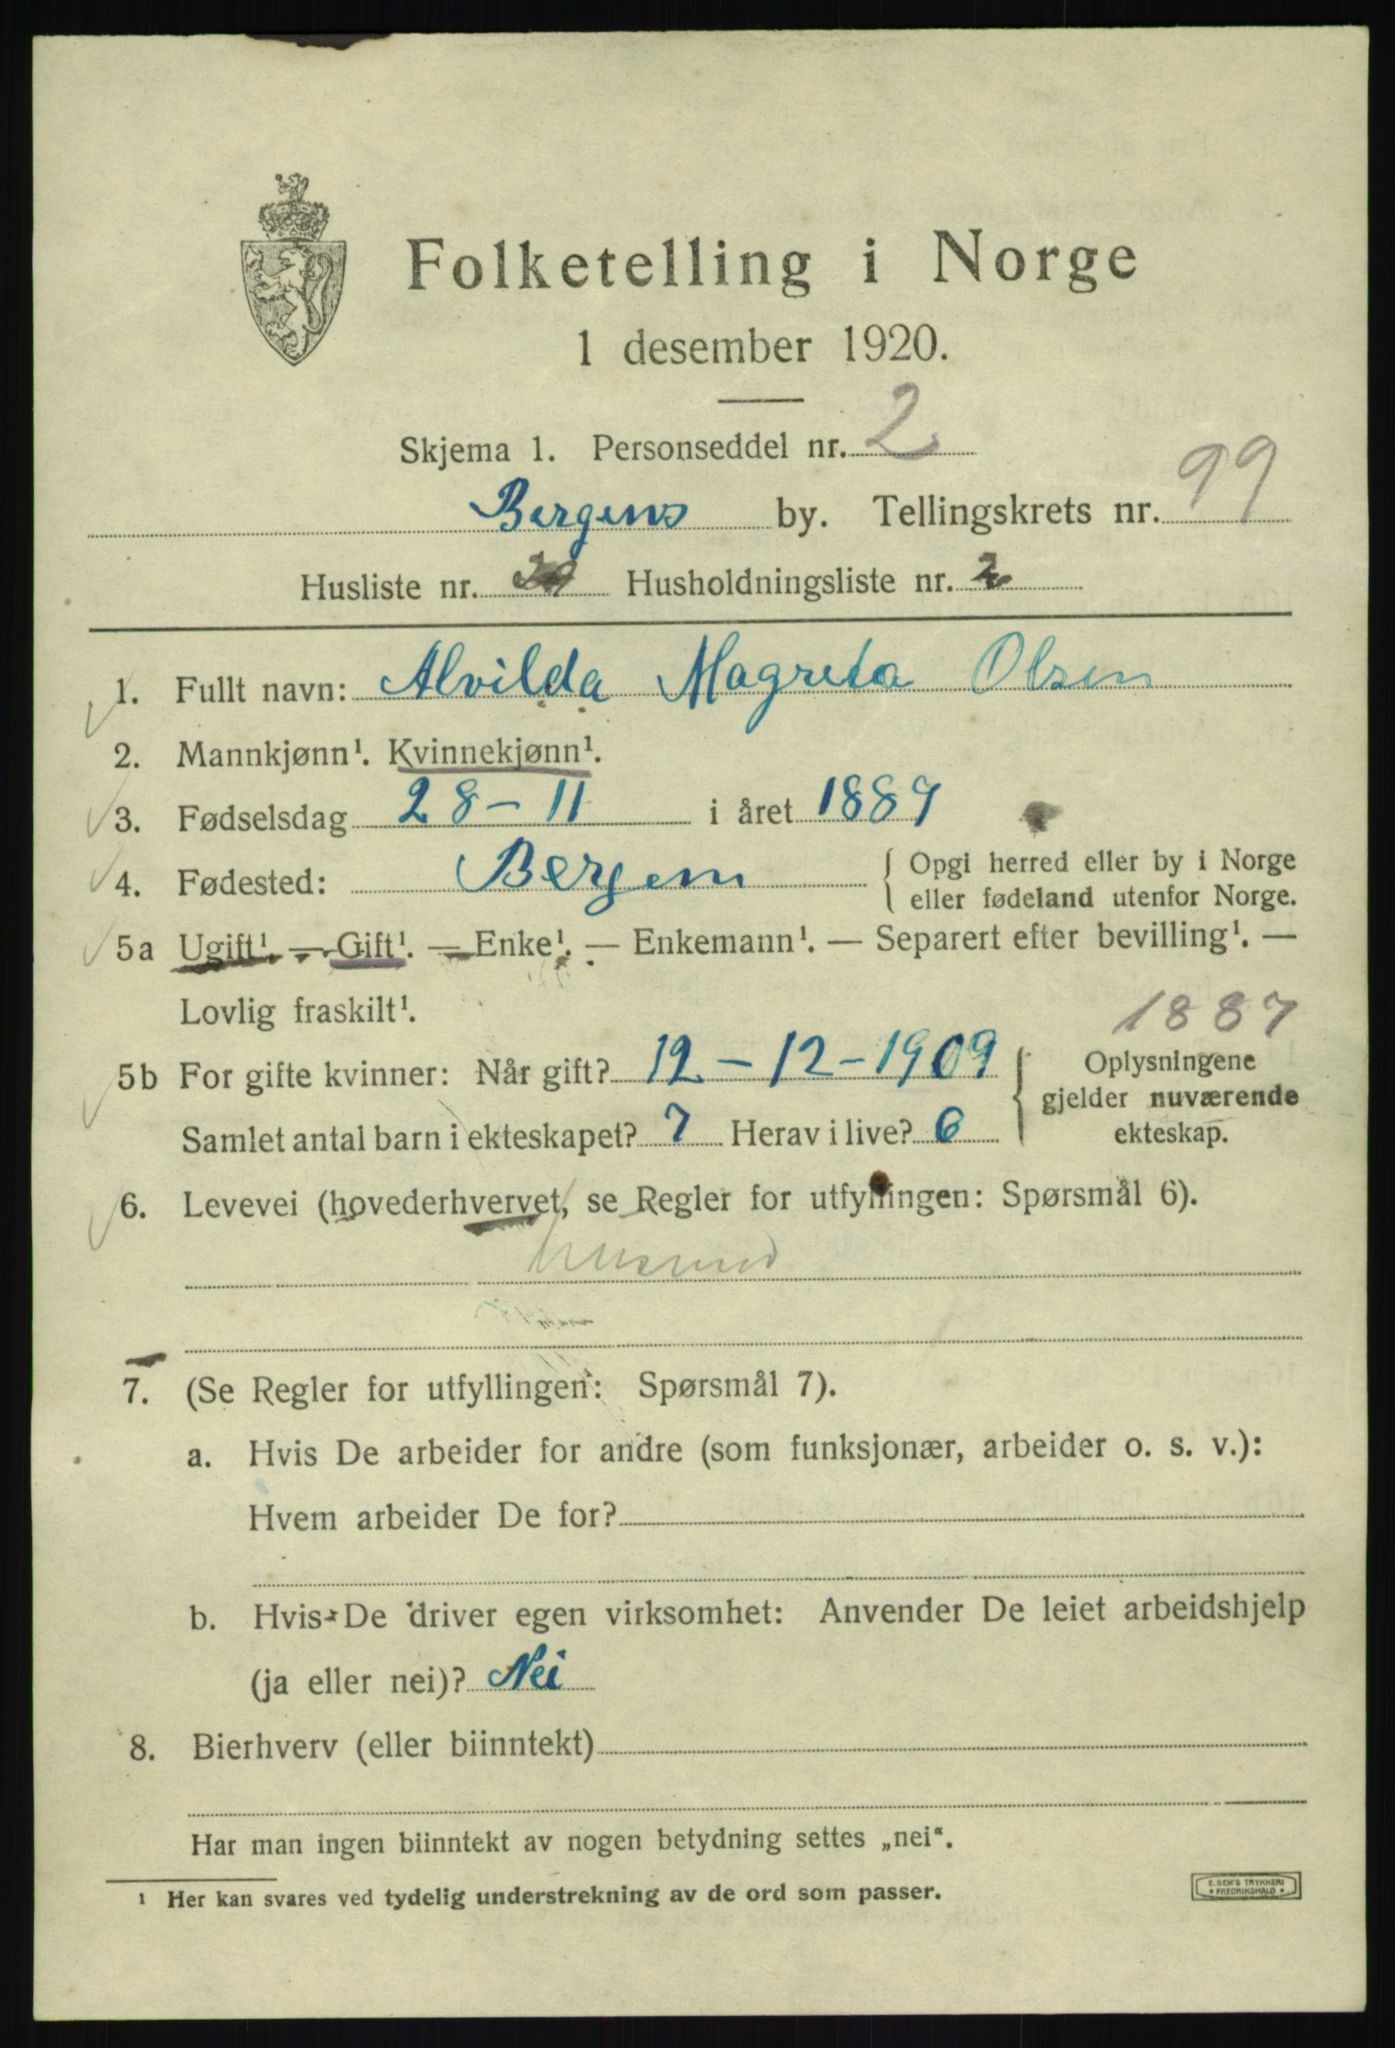 Folketelling i Norge
1 desember 1920.
Skjema 1. Personseddel nr. 2
Bergens by. Tellingskrets nr. 99
Husliste nr. Husholdningsliste nr. 2
1. Fullt navn: Alvilda Magreta Olsen
2. Mannkjønn¹. Kvinnekjønn¹.
3. Fødselsdag 28-11 i året 1889
4. Fødested: Bergen { Opgi herred eller by i Norge
eller fødeland utenfor Norge.
5a Ugift¹. — Gift¹. — Enke¹. — Enkemann¹. — Separert efter bevilling¹. —
Lovlig fraskilt¹.
1887
5b For gifte kvinner: Når gift? 12-12-1909 { Oplysningene
gjelder nuværende
Samlet antal barn i ekteskapet? 7 Herav i live? 6 ekteskap.
6. Levevei (hovederhvervet, se Regler for utfyllingen: Spørsmål 6).
7. (Se Regler for utfyllingen: Spørsmål 7).
a. Hvis De arbeider for andre (som funksjonær, arbeider o. s. v.):
Hvem arbeider De for?
b. Hvis De driver egen virksomhet: Anvender De leiet arbeidshjelp
(ja eller nei)? Nei
8. Bierhverv (eller biinntekt)
Har man ingen biinntekt av nogen betydning settes „nei“.
¹ Her kan svares ved tydelig understrekning av de ord som passer.
E. SEM'S TRYKKERI
FREDRIKSHALD